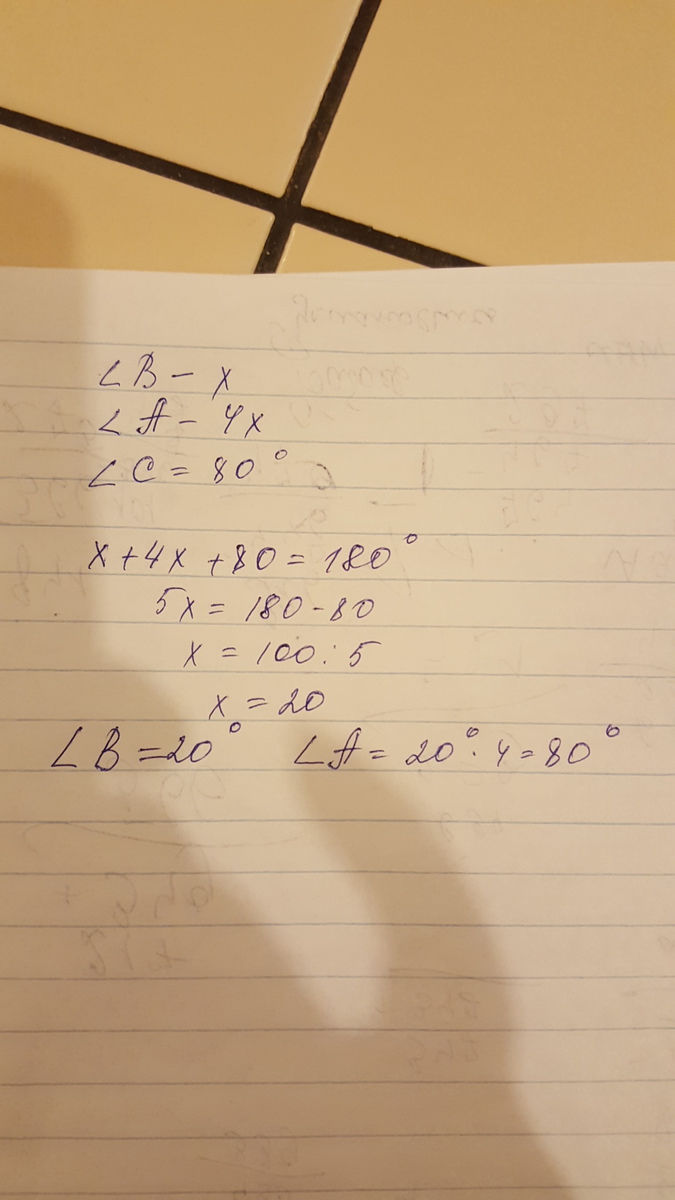 ∠B – x
∠A – 4x
∠C = 80°
x + 4x + 80 = 180°
5x = 180 - 80
x = 100 : 5
x = 20
∠B = 20° ∠A = 20° · 4 = 80°